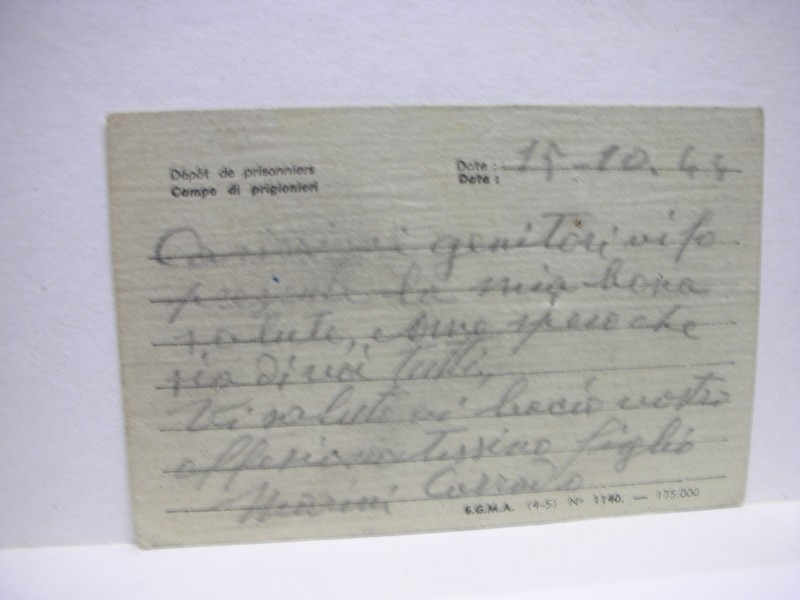 Dépôt de prisonniers
Campo di prigionieri
Date : 15-10.44
Data :
Carissimi genitori vi fo
presente la mia bona
salute, spero che
sia di voi tutti,
Vi saluto vi bacio vostro
affesionatissimo figlio
Marini Corrado
S.G.M.A. (4-5) Nº 1140. — 175.000